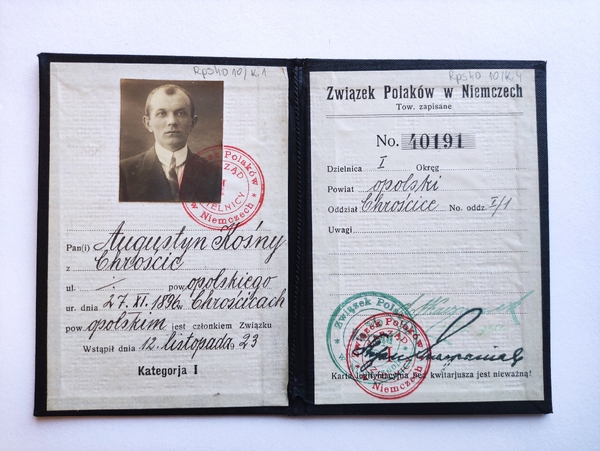 Rps 40 10/k.1
Pan(i) Augustyn Kośny
z Chrościc
ul. ./. pow. opolskiego
ur. dnia 27. XI. 1896 w Chrościcach
pow. opolskim jest członkiem Związku
Wstąpił dnia 12. listopada 23
Kategorja I
Związek Polaków w Niemczech
Rps 40 10/k.4
Związek Polaków w Niemczech
Tow. zapisane
No. 40191
Dzielnica I Okręg
Powiat opolski
Oddział Chrościce No. oddz. I/1
Uwagi
Związek Polaków
Związek Polaków
Karta legitymacyjna bez kwitarjusza jest nieważna!